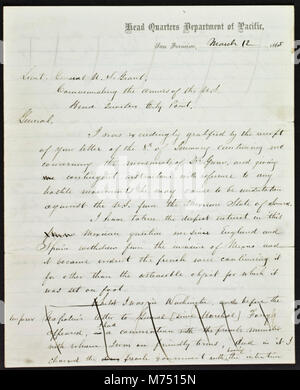 Head Quarters Department of Pacific,
San Francisco, March 12 1865
Lieut. General U. S. Grant,
Commanding the armies of the U.S.
Head Quarters City Point.
General,
I was exceedingly gratified by the receipt
of your letter of the 8th of January continuing me
concerning the movements of Dr. Gwin, and giving
me contingent instructions with reference to any
hostile movement he may cause to be instituted
against the U.S. from the Mexican State of Sonora.
I have taken the deepest interest in this
Mexican question ever since England and
Spain withdrew from the invasion of Mexico and
it became evident the french were continuing it
for other than the ostensible object for which it
was set on foot.
While I was in Washington, and before the
Napoleon's letter to General (since Marshal) Forey
appeared, in conversation with the french minister
with whom I was on friendly terms, and in it I
charged the french government with the intention
alamy
M7515N